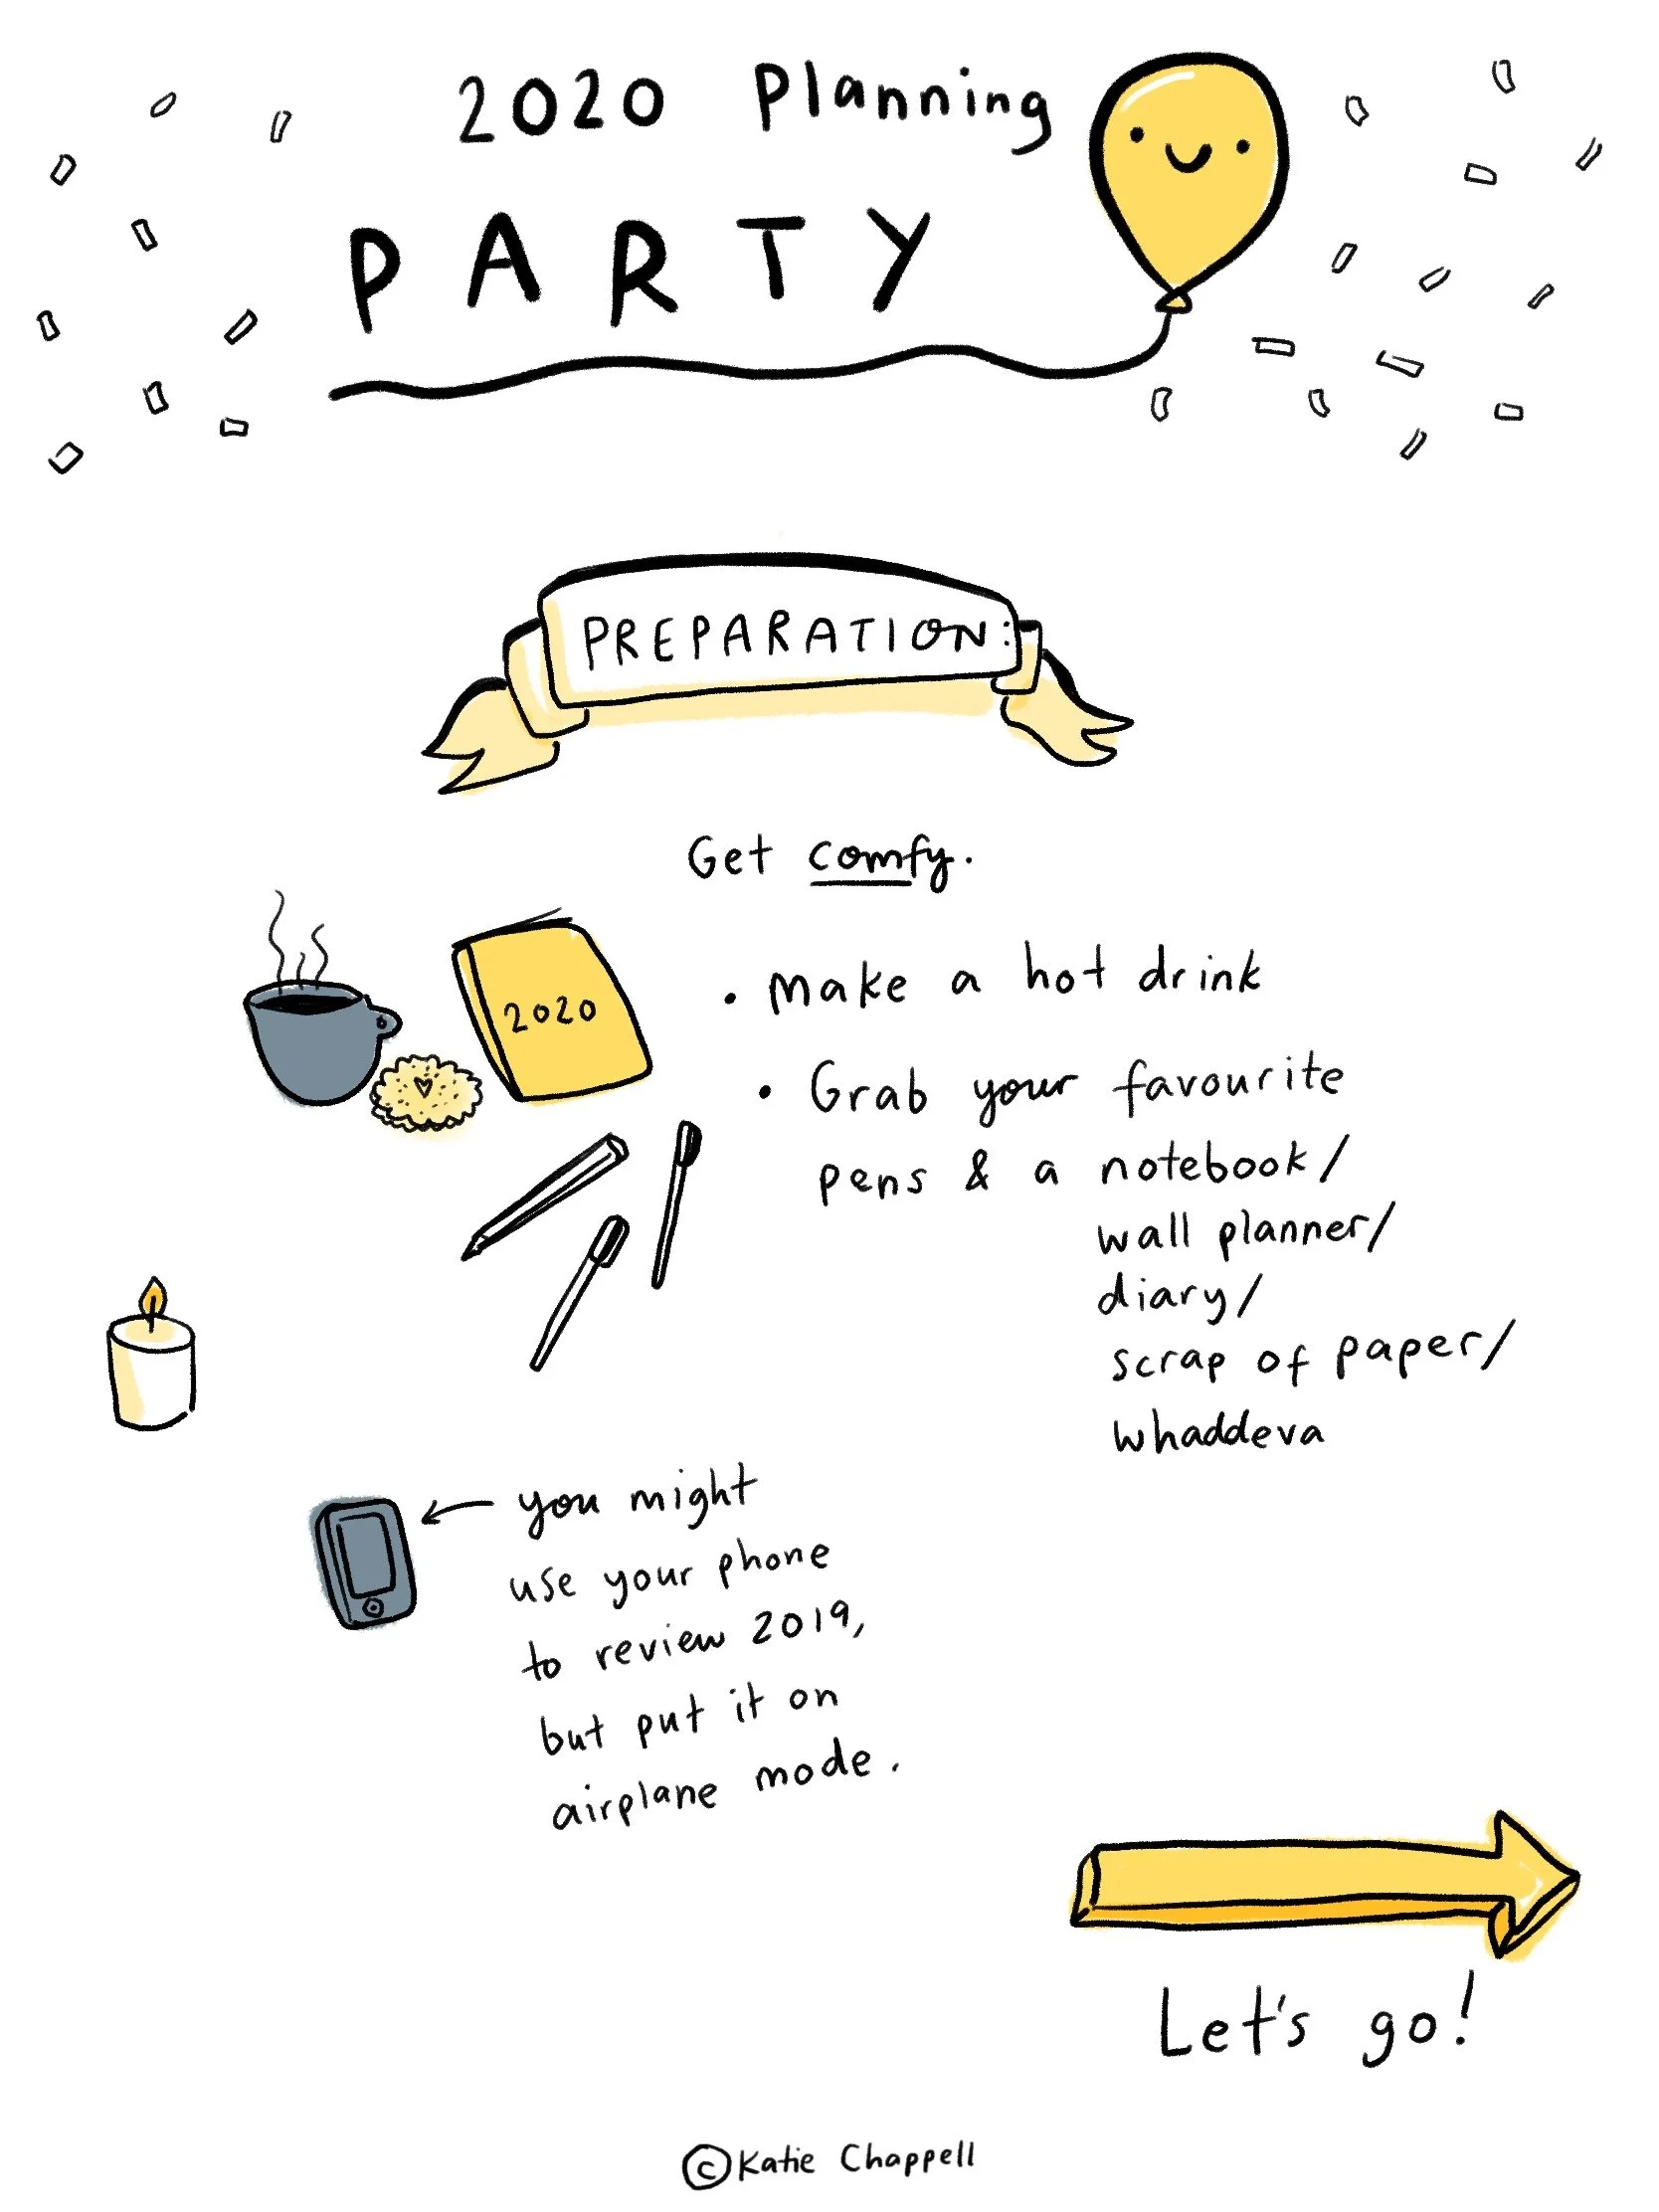 2020 Planning
PARTY
PREPARATION:
Get comfy.
2020
• Make a hot drink
• Grab your favourite
pens & a notebook/
wall planner/
diary/
scrap of paper/
whaddeva
you might
use your phone
to review 2019,
but put it on
airplane mode.
Let's go!
© Katie Chappell